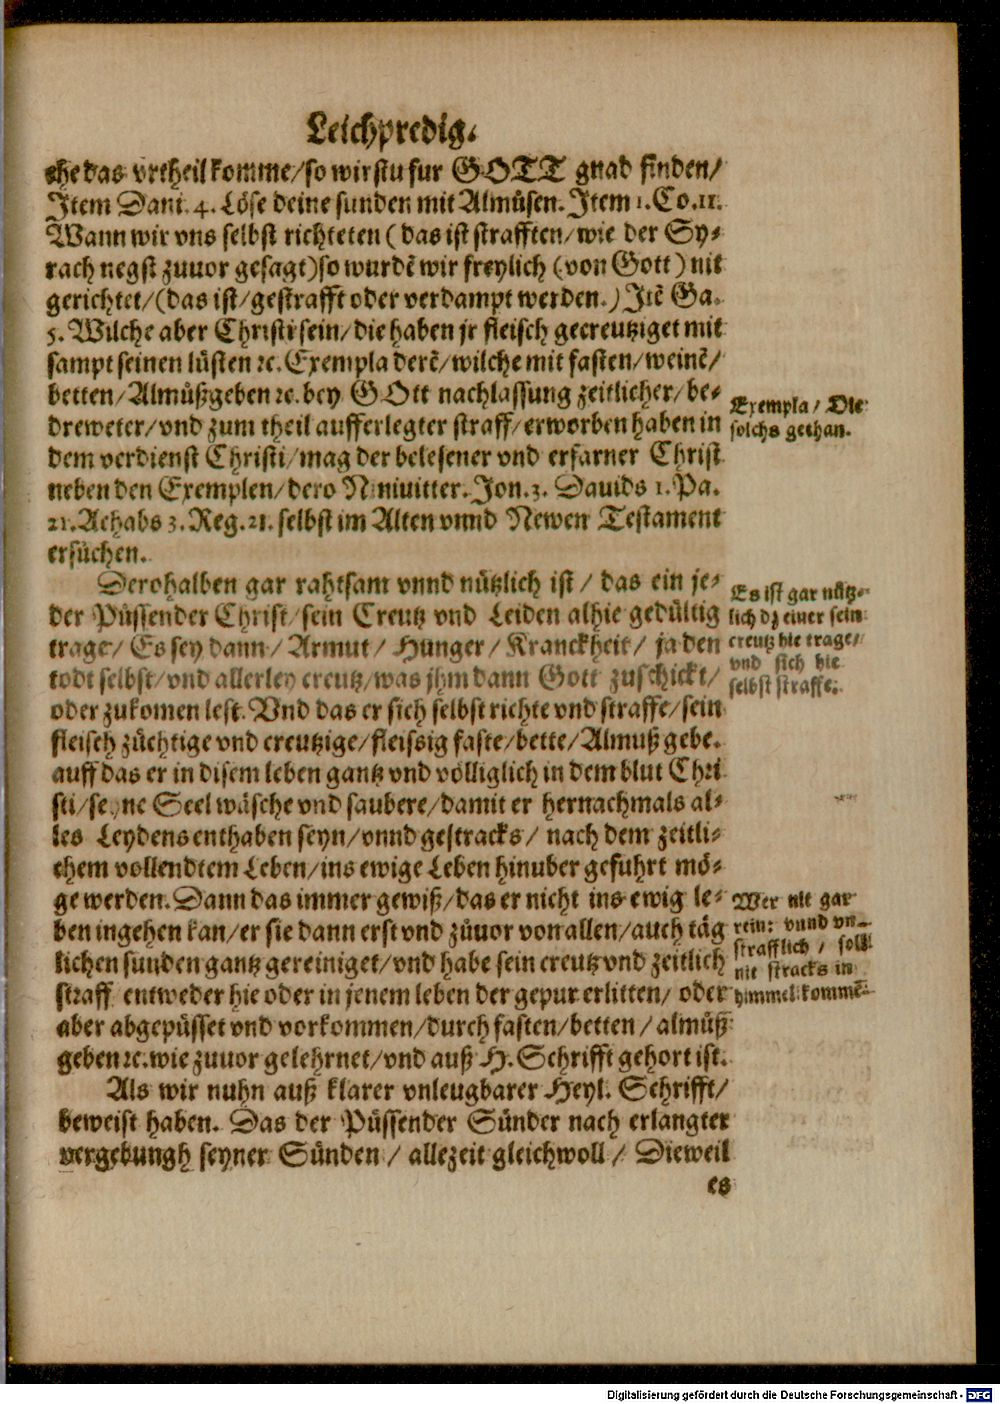 Leichpredig.
ehe das vrtheil komme/so wirstu fur GOTT gnad finden/
Item Dani. 4. Löse deine sunden mit Almůsen. Item 1. Co. 11.
Wann wir vns selbst richteten (das ist strafften/wie der Sy-
rach negst zuuor gesagt) so wurdē wir freylich (von Gott) nit
gerichtet/(das ist/gestrafft oder verdampt werden.) Itē Ga.
5. Wilche aber Christi sein/die haben jr fleisch gecreutziget mit
sampt seinen lüsten ꝛc. Exempla derē/wilche mit fasten/weinē/
betten/Almůßgeben ꝛc. bey GOtt nachlassung zeitlicher/be-
dreweter/vnd zum theil aufferlegter straff/erworben haben in
Exempla/Die
solchs gethan.
dem verdienst Christi/mag der belesener vnd erfarner Christ
neben den Exemplen/dero Niniuitter. Jon. 3. Dauids 1. Pa.
21. Achabs 3. Reg. 21. selbst im Alten vnnd Newen Testament
ersůchen.
Derohalben gar rahtsam vnnd nützlich ist/das ein je-
der Püssender Christ/sein Creutz vnd Leiden alhie gedültig
trage/Es sey dann/Armut/Hunger/Kranckheit/ja den
todt selbst/vnd allerley creutz/was jhm dann Gott zuschickt/
Es ist gar nütz-
lich dz einer sein
creutz hie trage/
vnd sich hie
selbst straffe.
oder zukomen lest. Vnd das er sich selbst richte vnd straffe/sein
fleisch züchtige vnd creutzige/fleissig faste/bette/Almuß gebe.
auff das er in disem leben gantz vnd völliglich in dem blut Chri
sti/seyne Seel wäsche vnd saubere/damit er hernachmals al-
les Leydens enthaben seyn/vnnd gestracks/nach dem zeitli-
chem vollendtem Leben/ins ewige Leben hinuber gefuhrt mö-
ge werden. Dann das immer gewiß/das er nicht ins ewig le-
ben ingehen kan/er sie dann erst vnd züuor von allen/auch täg
lichen sunden gantz gereiniget/vnd habe sein creutz vnd zeitlich
straff entweder hie oder in jenem leben der gepur erlitten/oder
Wer nit gar
rein: vnnd vn-
strafflich/soll
nit stracks in
himmel kommē.
aber abgepüsset vnd vorkommen/durch fasten/betten/almůß
geben ꝛc. wie zuuor gelehrnet/vnd auß H. Schrifft gehort ist.
Als wir nuhn auß klarer vnleugbarer Heyl. Schrifft/
beweist haben. Das der Püssender Sünder nach erlangter
vergebungh seyner Sünden/allezeit gleichwoll/Dieweil
es
Digitalisierung gefördert durch die Deutsche Forschungsgemeinschaft - DFG